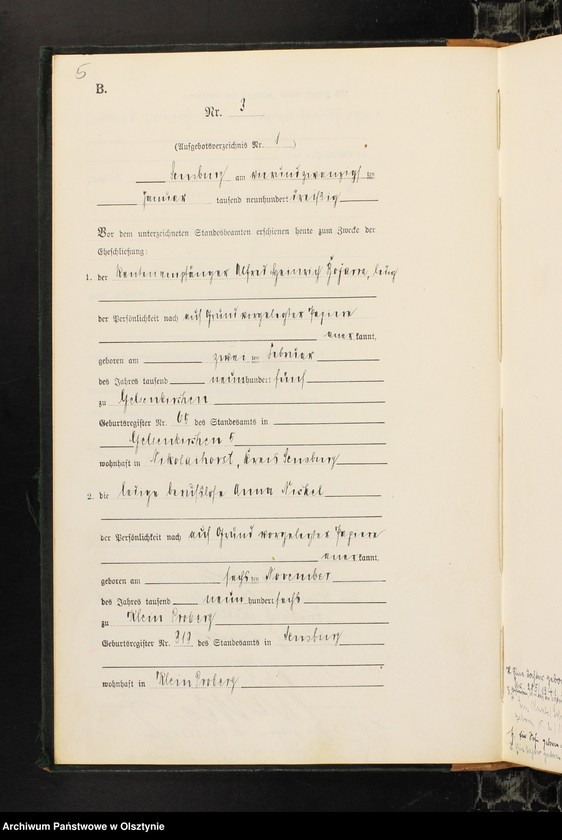 5
B.
Nr. 3
(Aufgebotsverzeichnis Nr. 1)
Sensburg am vierundzwanzigsten
Januar tausend neunhundert dreißig
Vor dem unterzeichneten Standesbeamten erschienen heute zum Zwecke der
Eheschließung:
1. der Rentenempfänger Alfred Heinrich ledig
der Persönlichkeit nach auf Grund vorgelegter Papiere
anerkannt,
geboren am zweiten Februar
des Jahres tausend neunhundert fünf
zu Gelsenkirchen
Geburtsregister Nr. des Standesamts in
Gelsenkirchen
wohnhaft in Nikolaihorst, Kreis Sensburg
2. die ledige berufslose Anna Nickel
der Persönlichkeit nach auf Grund vorgelegter Papiere
anerkannt,
geboren am sechsten November
des Jahres tausend neunhundert sechs
zu Klein Proberg
Geburtsregister Nr. 213 des Standesamts in Sensburg
wohnhaft in Klein Proberg
Archiwum Państwowe w Olsztynie